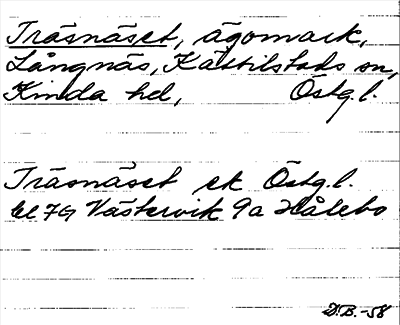 Träsnäset, ägomark,
Långnäs, Kättilstads sn,
Kinda hd, Östg.l.
Träsnäset ek Östg.l.
bl 7G Västervik 9a Hålebo
D.B.-58